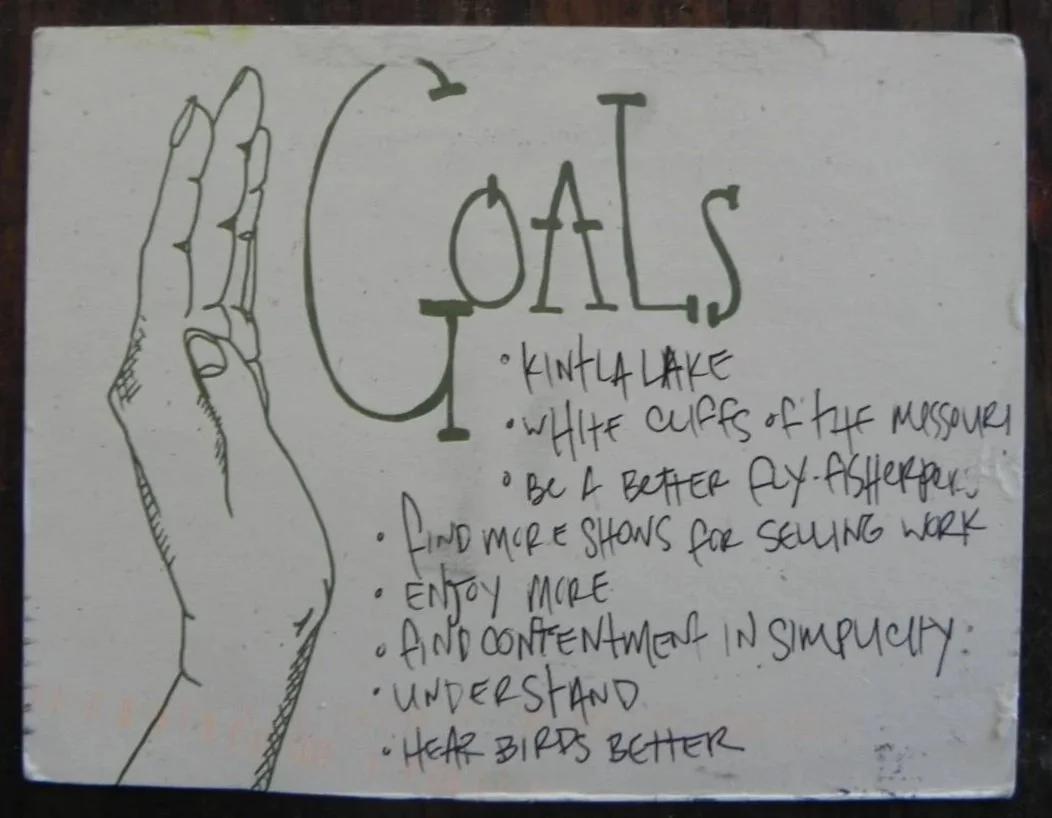 GOALS
• KINTLA LAKE
• WHITE CLIFFS OF THE MISSOURI
• BE A BETTER FLY-FISHERPER.
• FIND MORE SHOWS FOR SELLING WORK
• ENJOY MORE
• FIND CONTENTMENT IN SIMPLICITY.
• UNDERSTAND
• HEAR BIRDS BETTER